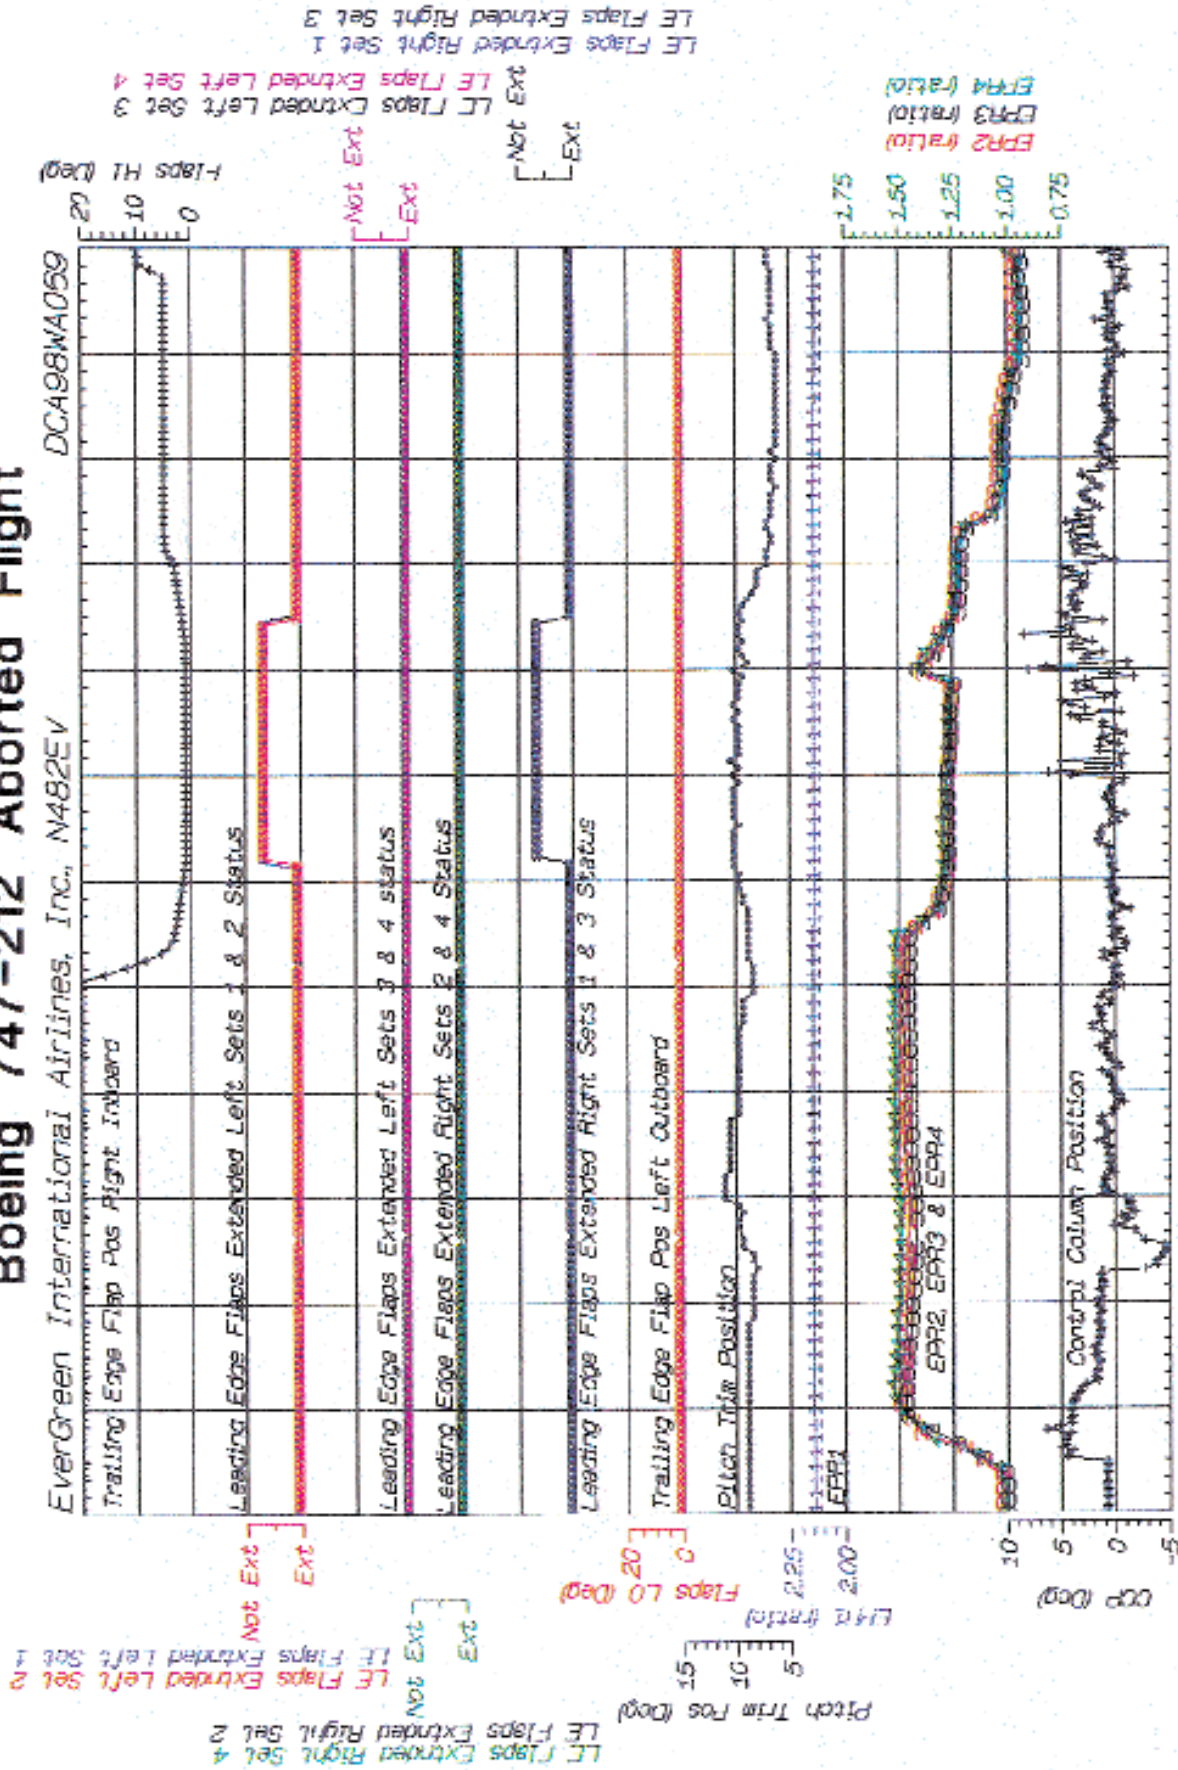 Boeing 747-212 Aborted Flight
EverGreen International Airlines, Inc., N482EV
DCA98WA069
Trailing Edge Flap Pos Right Inboard
Leading Edge Flaps Extended Left Sets 1 & 2 Status
Leading Edge Flaps Extended Left Sets 3 & 4 status
Leading Edge Flaps Extended Right Sets 2 & 4 Status
Leading Edge Flaps Extended Right Sets 1 & 3 Status
Trailing Edge Flap Pos Left Outboard
Pitch Trim Position
EPR1
EPR2, EPR3 & EPR4
Control Column Position
20
10
0
Flaps HI (Deg)
Not Ext
Ext
LE Flaps Extnded Left Set 3
LE Flaps Extnded Left Set 4
Not Ext
Ext
LE Flaps Extnded Right Set 1
LE Flaps Extnded Right Set 3
1.75
1.50
1.25
1.00
0.75
EPR2 (ratio)
EPR3 (ratio)
EPR4 (ratio)
Not Ext
Ext
LE Flaps Extnded Left Set 1
LE Flaps Extnded Left Set 2
Not Ext
Ext
LE Flaps Extnded Right Set 2
LE Flaps Extnded Right Set 4
20
0
Flaps LO (Deg)
2.25
2.00
(ratio)
15
10
5
Pitch Trim Pos (Deg)
10
5
0
-5
CCP (Deg)